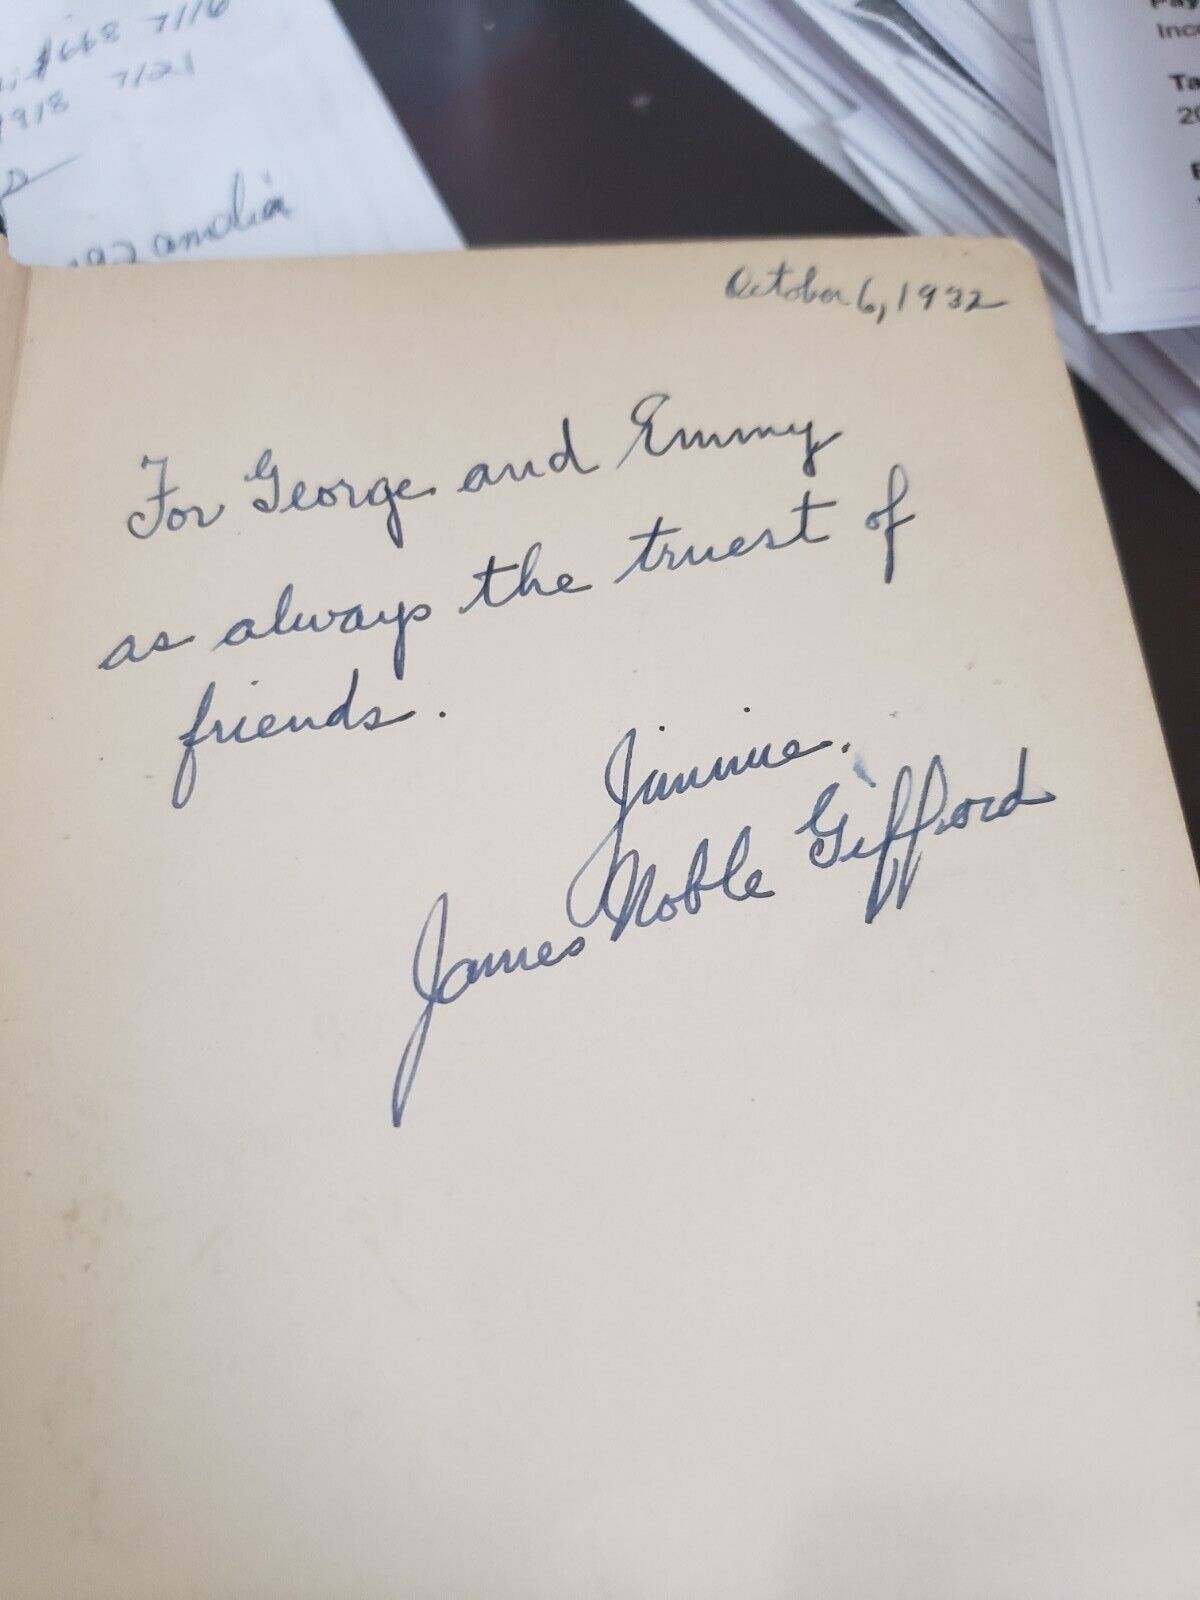 $668 7/16
918 7/21
192 amdia
Pay
Inco
Ta
20
October 6, 1932
For George and Emmy
as always the truest of
friends.
Jimmie.
James Noble Gifford